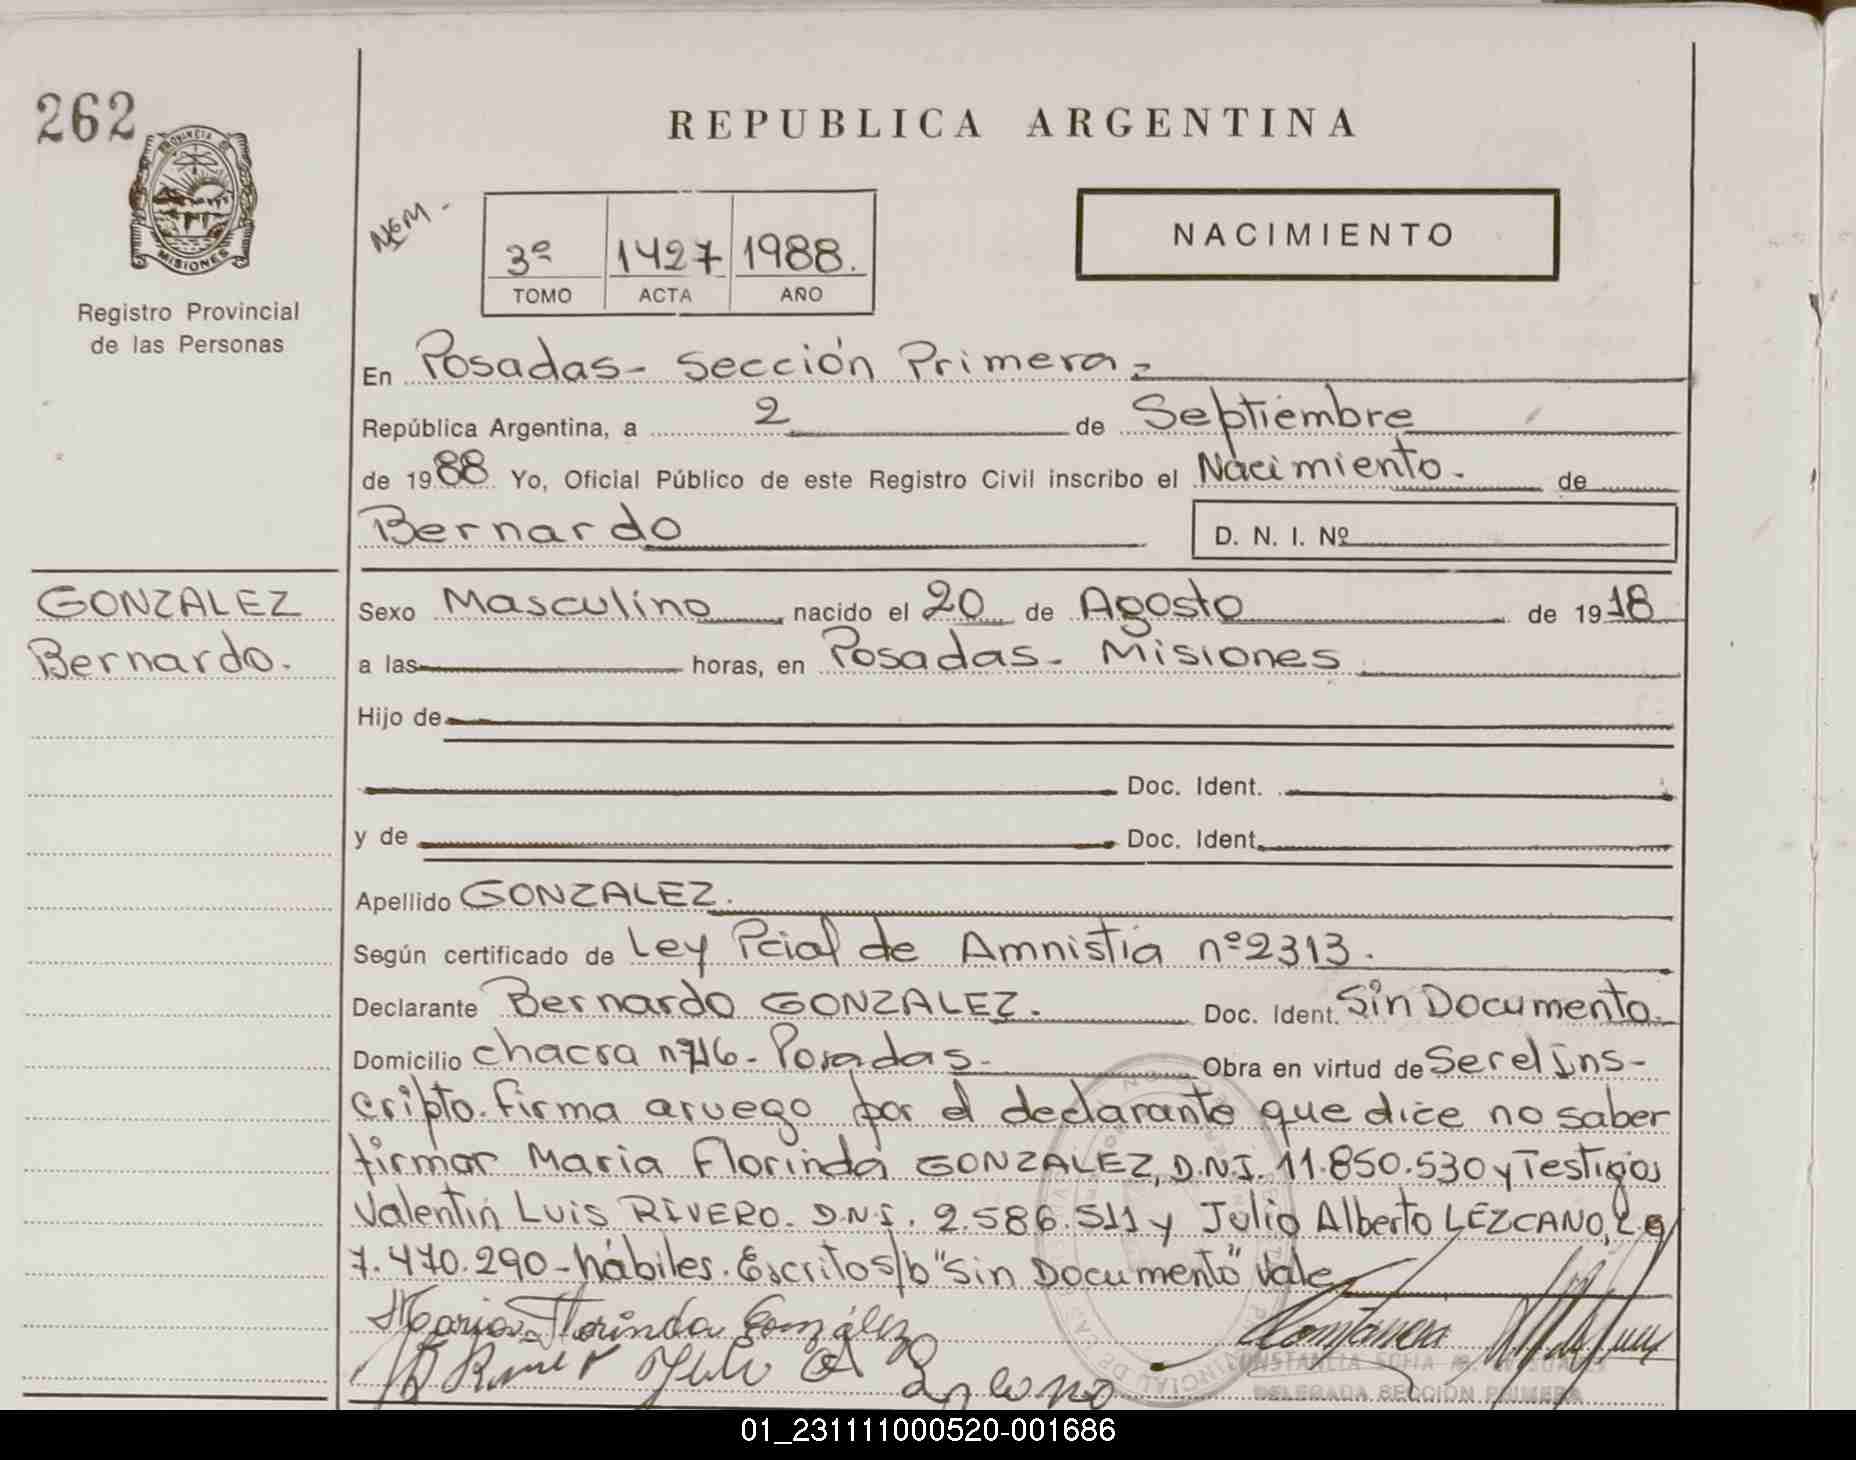 262
PROVINCIA
MISIONES
Registro Provincial
de las Personas
GONZALEZ
Bernardo.
REPUBLICA ARGENTINA
3º 1427 1988.
TOMO ACTA AÑO
NACIMIENTO
En Posadas- Sección Primera.-
República Argentina, a 2 de Septiembre
de 1988 Yo, Oficial Público de este Registro Civil inscribo el Nacimiento. de
Bernardo D. N. I. Nº
Sexo Masculino nacido el 20 de Agosto de 1918
a las horas, en Posadas- Misiones
Hijo de
Doc. Ident.
y de Doc. Ident.
Apellido GONZALEZ.
Según certificado de Ley Pcial de Amnistía nº2313.
Declarante Bernardo GONZALEZ. Doc. Ident. Sin Documento.
Domicilio chacra nº Posadas- Obra en virtud de Ser el Ins-
cripto. firma aruego por el declarante que dice no saber
firmar Maria Florinda GONZALEZ, D.N.I. 11.850.530 y Testigos
Valentín Luis RIVERO. D.N.I. 2.586.511 y Julio Alberto LEZCANO, L.e
7.470.290-hábiles. Escrito s/b "Sin Documento" Vale
Maria Florinda González
Constancia
CONSTANCIA SOFIA
DELEGADA SECCIÓN PRIMERA
01_231111000520-001686